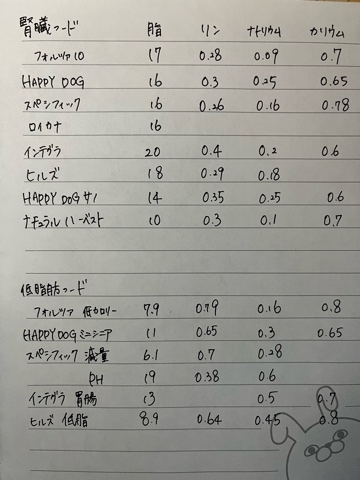 腎臓フード 脂 リン ナトリウム カリウム
フォルツァ10 17 0.28 0.09 0.7
HAPPY DOG 16 0.3 0.25 0.65
スペシフィック 16 0.26 0.16 0.78
ロイカナ 16
インテグラ 20 0.4 0.2 0.6
ヒルズ 18 0.29 0.18
HAPPY DOG サノ 14 0.35 0.25 0.6
ナチュラルハーベスト 10 0.3 0.1 0.7
低脂肪フード
フォルツァ 低カロリー 7.9 0.79 0.16 0.8
HAPPY DOG ミニシニア 11 0.65 0.3 0.65
スペシフィック 減量 6.1 0.7 0.28
PH 19 0.38 0.6
インテグラ 胃腸 13 0.5 0.7
ヒルズ 低脂 8.9 0.64 0.45 0.8